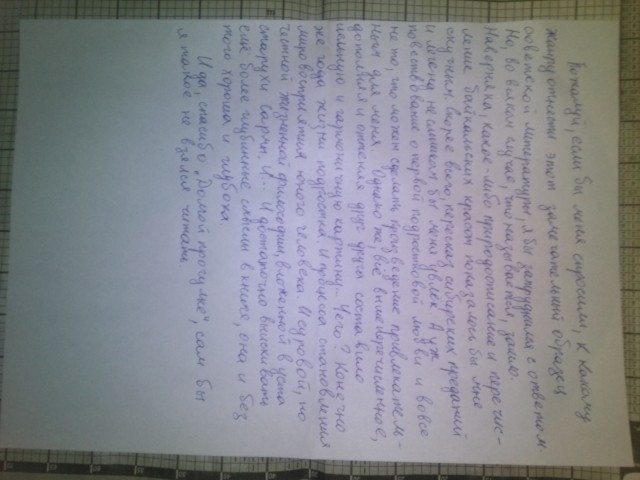 Пожалуй, если бы меня спросили, к какому
жанру отнести этот замечательный образец
советской литературы, я бы затруднился с ответом.
Но, во всяком случае, что называется, зацепило.
Наверняка, какое-либо природописание и перечис-
ление байкальских красот показалось бы мне
скучным. Скорее всего, пересказ сибирских преданий
и легенд не слишком бы меня увлёк. А уж
повествование о первой подростковой любви и вовсе
не то, что может сделать произведение привлекатель-
ным для меня. Однако же всё вышеперечисленное,
дополняя и оттеняя друг друга, составило
цельную и гармоничную картину. Чего? Конечно
же года жизни подростка. И процесса становления
мировосприятия юного человека. И суровой, но
честной жизненной философии, вложенной в уста
старухи Сармы. И... И достаточно выискивать
ещё более глубинные смыслы в книге, она и без
того хороша и глубока.
И да, спасибо "Долгой прогулке", сам бы
я такое не взялся читать.